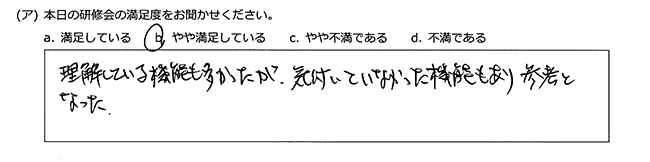 (ア) 本日の研修会の満足度をお聞かせください。
a. 満足している b. やや満足している c. やや不満である d. 不満である
理解している機能も多かったが、気付いていなかった機能もあり参考と
なった.